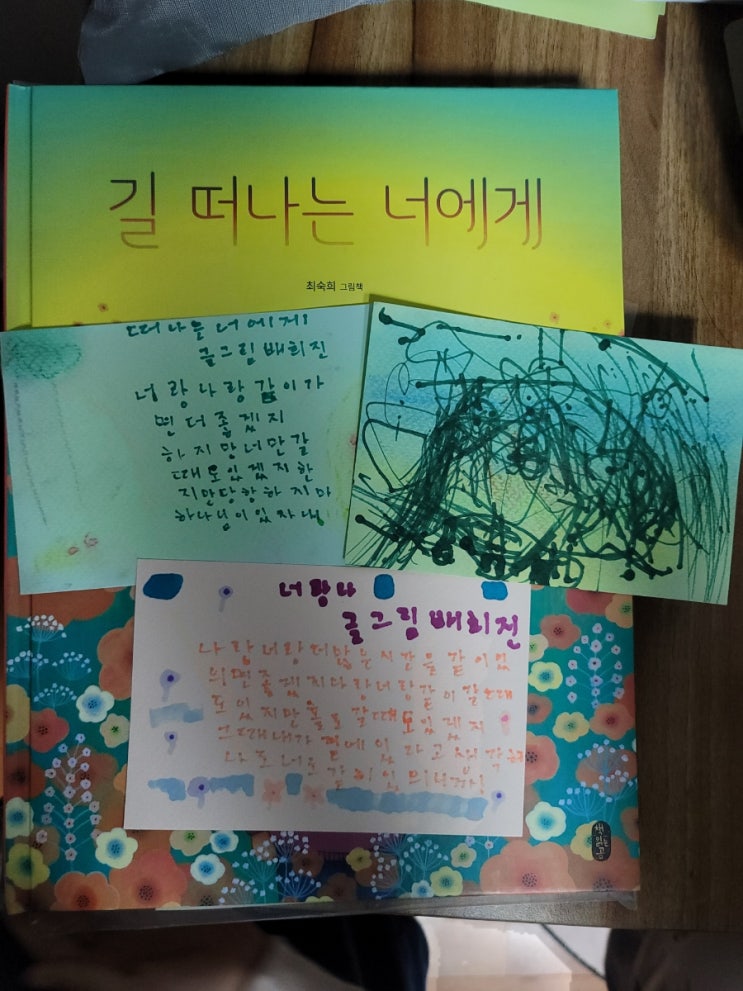 길 떠나는 너에게
최숙희 그림책
떠나는너에게
글그림배희진
너랑나랑같이가
면더좋겠지
하지만너만갈
때도있겠지한
지만당황하지마
하나님이있자나
너랑나
글그림배희진
나랑너랑더많은시간을같이있
의면좋겠지나랑너랑같이갈때
도있지만홀로갈때도있겠지
그때내가 있다고생각해
나도너도같이있
책읽는곰